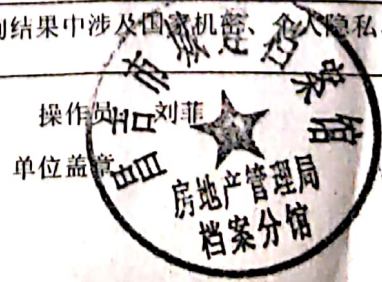 结果中涉及国家机密、个人隐私
操作员 刘菲
单位盖章
昌吉市城建档案馆
房地产管理局
档案分馆